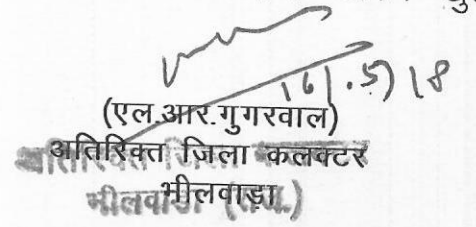 16.5.18
(एल.आर.गुगरवाल)
अतिरिक्त ज़िला कलक्टर
भीलवाड़ा
भीलवाड़ा (राज.)